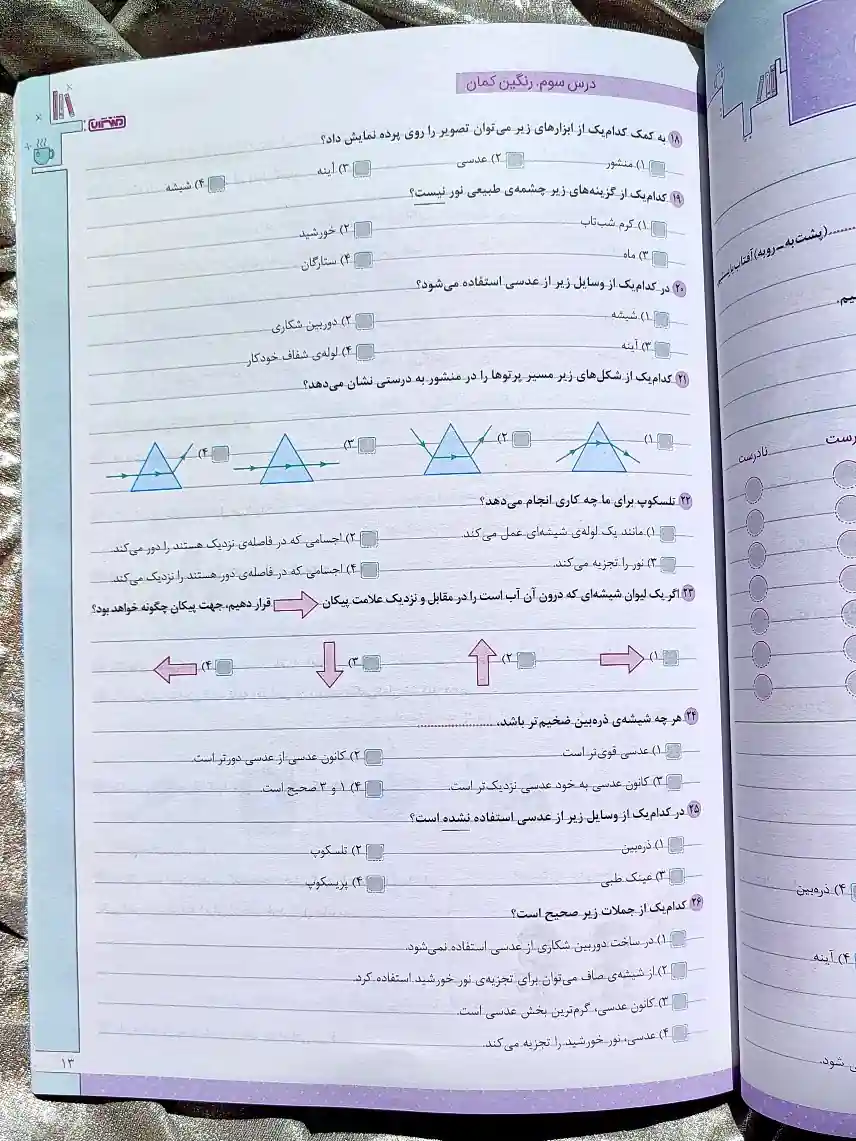 درس سوم. رنگین کمان
۱۸ به کمک کدام‌یک از ابزارهای زیر می‌توان تصویر را روی پرده نمایش داد؟
۱) منشور ۲) عدسی ۳) آینه ۴) شیشه
۱۹ کدام‌یک از گزینه‌های زیر چشمه‌ی طبیعی نور نیست؟
۱) کرم شب‌تاب ۲) خورشید
۳) ماه ۴) ستارگان
۲۰ در کدام‌یک از وسایل زیر از عدسی استفاده می‌شود؟
۱) شیشه ۲) دوربین شکاری
۳) آینه ۴) لوله‌ی شفاف خودکار
۲۱ کدام‌یک از شکل‌های زیر مسیر پرتوها را در منشور به درستی نشان می‌دهد؟
۱) ۲) ۳) ۴)
۲۲ تلسکوپ برای ما چه کاری انجام می‌دهد؟
۱) مانند یک لوله‌ی شیشه‌ای عمل می‌کند. ۲) اجسامی که در فاصله‌ی نزدیک هستند را دور می‌کند.
۳) نور را تجزیه می‌کند. ۴) اجسامی که در فاصله‌ی دور هستند را نزدیک می‌کند.
۲۳ اگر یک لیوان شیشه‌ای که درون آن آب است را در مقابل و نزدیک علامت پیکان قرار دهیم، جهت پیکان چگونه خواهد بود؟
۱) ۲) ۳) ۴)
۲۴ هر چه شیشه‌ی ذره‌بین ضخیم‌تر باشد، ....................
۱) عدسی قوی‌تر است. ۲) کانون عدسی از عدسی دورتر است.
۳) کانون عدسی به خود عدسی نزدیک‌تر است. ۴) ۱ و ۳ صحیح است.
۲۵ در کدام‌یک از وسایل زیر از عدسی استفاده نشده است؟
۱) ذره‌بین ۲) تلسکوپ
۳) عینک طبی ۴) پریسکوپ
۲۶ کدام‌یک از جملات زیر صحیح است؟
۱) در ساخت دوربین شکاری از عدسی استفاده نمی‌شود.
۲) از شیشه‌ی صاف می‌توان برای تجزیه‌ی نور خورشید استفاده کرد.
۳) کانون عدسی، گرم‌ترین بخش عدسی است.
۴) عدسی، نور خورشید را تجزیه می‌کند.
۱۳
(پشت به ـ رو به) آفتاب
نادرست
۴) ذره‌بین
۴) آینه
شود.